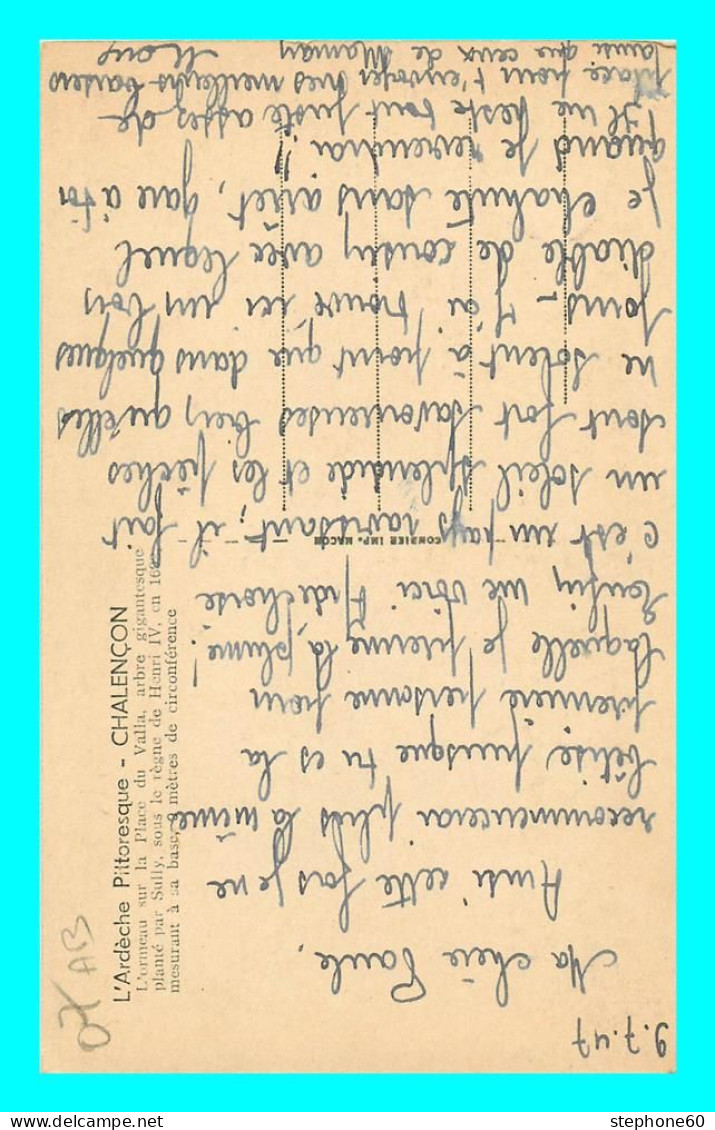 9.7.47
Ma chère Paule,
Ainsi cette fois je ne
recommencerai plus la même
bêtise puisque tu es la
première personne pour
laquelle je prenne la plume !
Enfin me voici Ardéchoise
C'est un pays ravissant ; il fait
un soleil splendide et les pêches
sont fort savoureuses bien qu'elles
ne soient à point que dans quelques
jours - J'ai trouvé ici un bon
diable de cousin avec lequel
je chahute sans arrêt, gare à toi
quand je reviendrai !
Il me reste tout juste assez de
place pour t'envoyer mes meilleurs baisers
ainsi que ceux de Maman
L'Ardèche Pittoresque - CHALENÇON
L'ormeau sur la Place du Valla, arbre gigantesque
planté par Sully, sous le règne de Henri IV, en
mesurant à sa base, 9 mètres de circonférence
COMBIER IMP. MACON
AB
stephone60